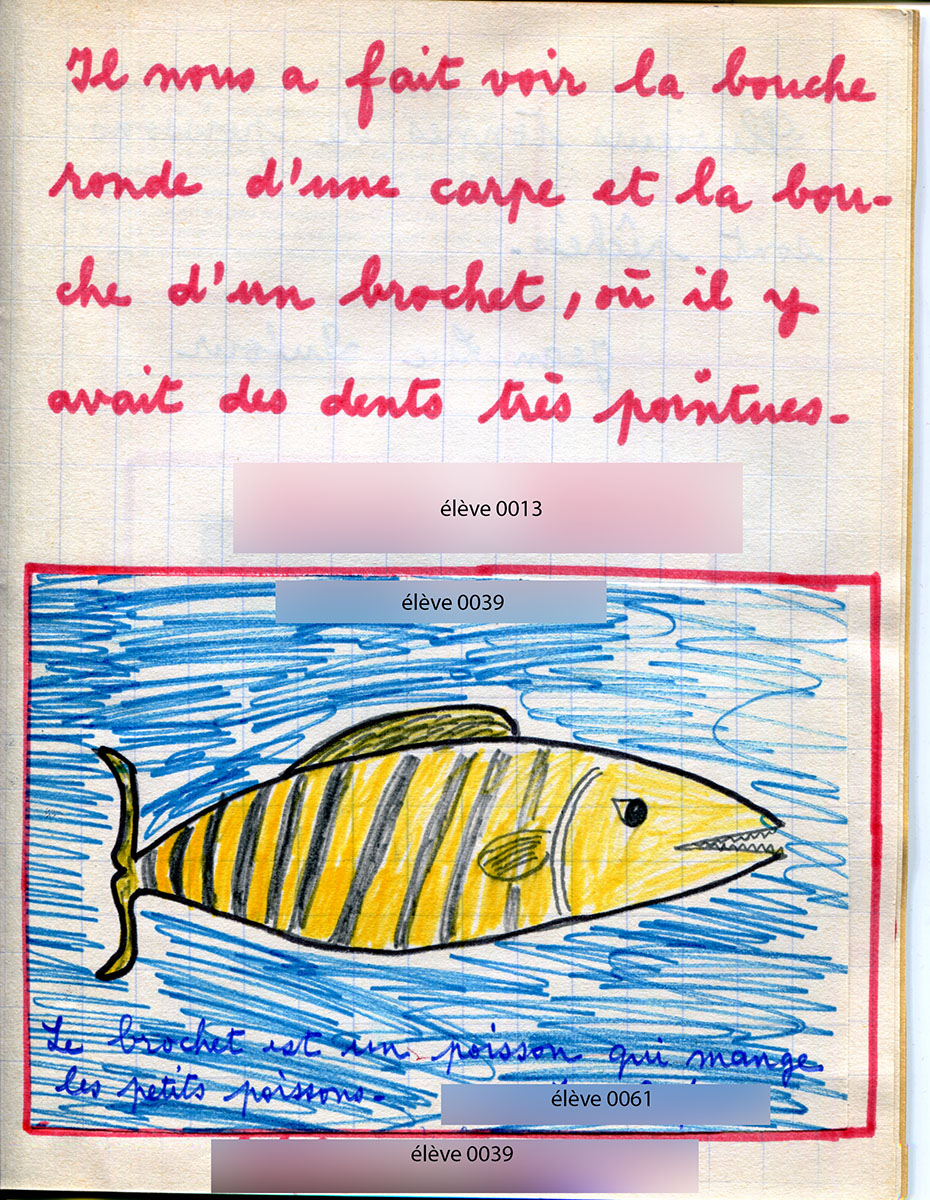 Il nous a fait voir la bouche
ronde d'une carpe et la bou-
che d'un brochet, où il y
avait des dents très pointues-
élève 0013
élève 0039
Le brochet est un poisson qui mange
les petits poissons-
élève 0061
élève 0039